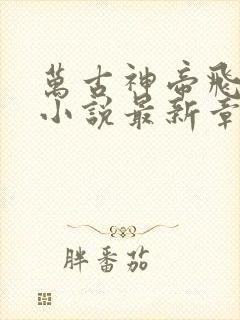 萬古神帝飛
小說最新章
胖番茄